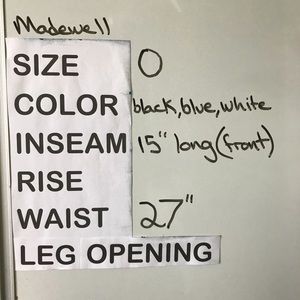 Madewell
SIZE 0
COLOR black, blue, white
INSEAM 15" long (front)
RISE
WAIST 27"
LEG OPENING